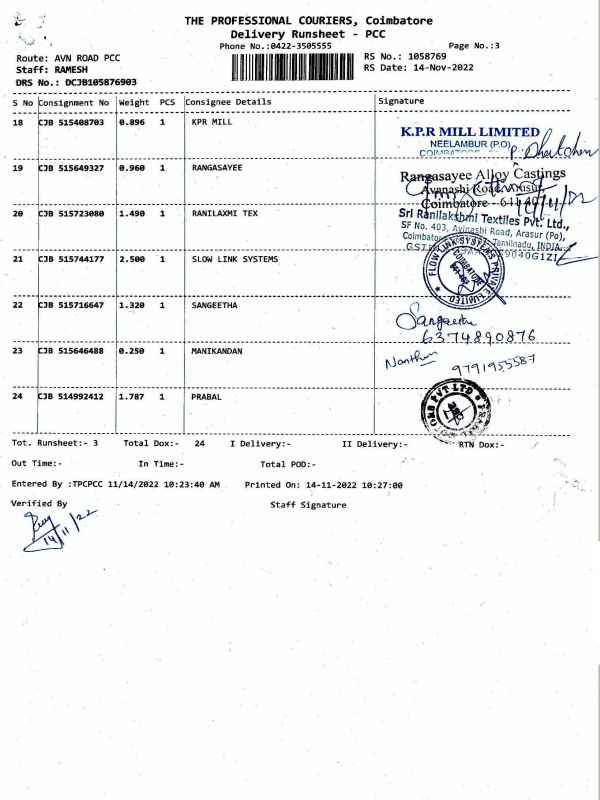 THE PROFESSIONAL COURIERS, Coimbatore
Delivery Runsheet - PCC
Phone No.:0422-3505555
Page No.:3
Route: AVN ROAD PCC
RS No.: 1058769
Staff: RAMESH
RS Date: 14-Nov-2022
DRS No.: DCJB105876903
S No Consignment No Weight PCS Consignee Details Signature
18 CJB 515408703 0.896 1 KPR MILL
K.P.R MILL LIMITED
NEELAMBUR (P.O)
COIMBATORE
19 CJB 515649327 0.960 1 RANGASAYEE
Rangasayee Alloy Castings
Avanashi Road, Arasur
Coimbatore
20 CJB 515723080 1.490 1 RANILAXMI TEX
Sri Ranilakshmi Textiles Pvt. Ltd.,
SF No. 403, Avinashi Road, Arasur (Po),
Tamilnadu, INDIA
9040G1ZI
21 CJB 515744177 2.500 1 SLOW LINK SYSTEMS
FLOW LINK SYSTEMS PRIVATE LIMITED
COIMBATORE
22 CJB 515716647 1.320 1 SANGEETHA
Sangeetha
6374890876
23 CJB 515646488 0.250 1 MANIKANDAN
9791953587
24 CJB 514992412 1.787 1 PRABAL
PVT LTD
Tot. Runsheet:- 3 Total Dox:- 24 I Delivery:- II Delivery:- RTN Dox:-
Out Time:- In Time:- Total POD:-
Entered By :TPCPCC 11/14/2022 10:23:40 AM Printed On: 14-11-2022 10:27:00
Verified By Staff Signature
14/11/22